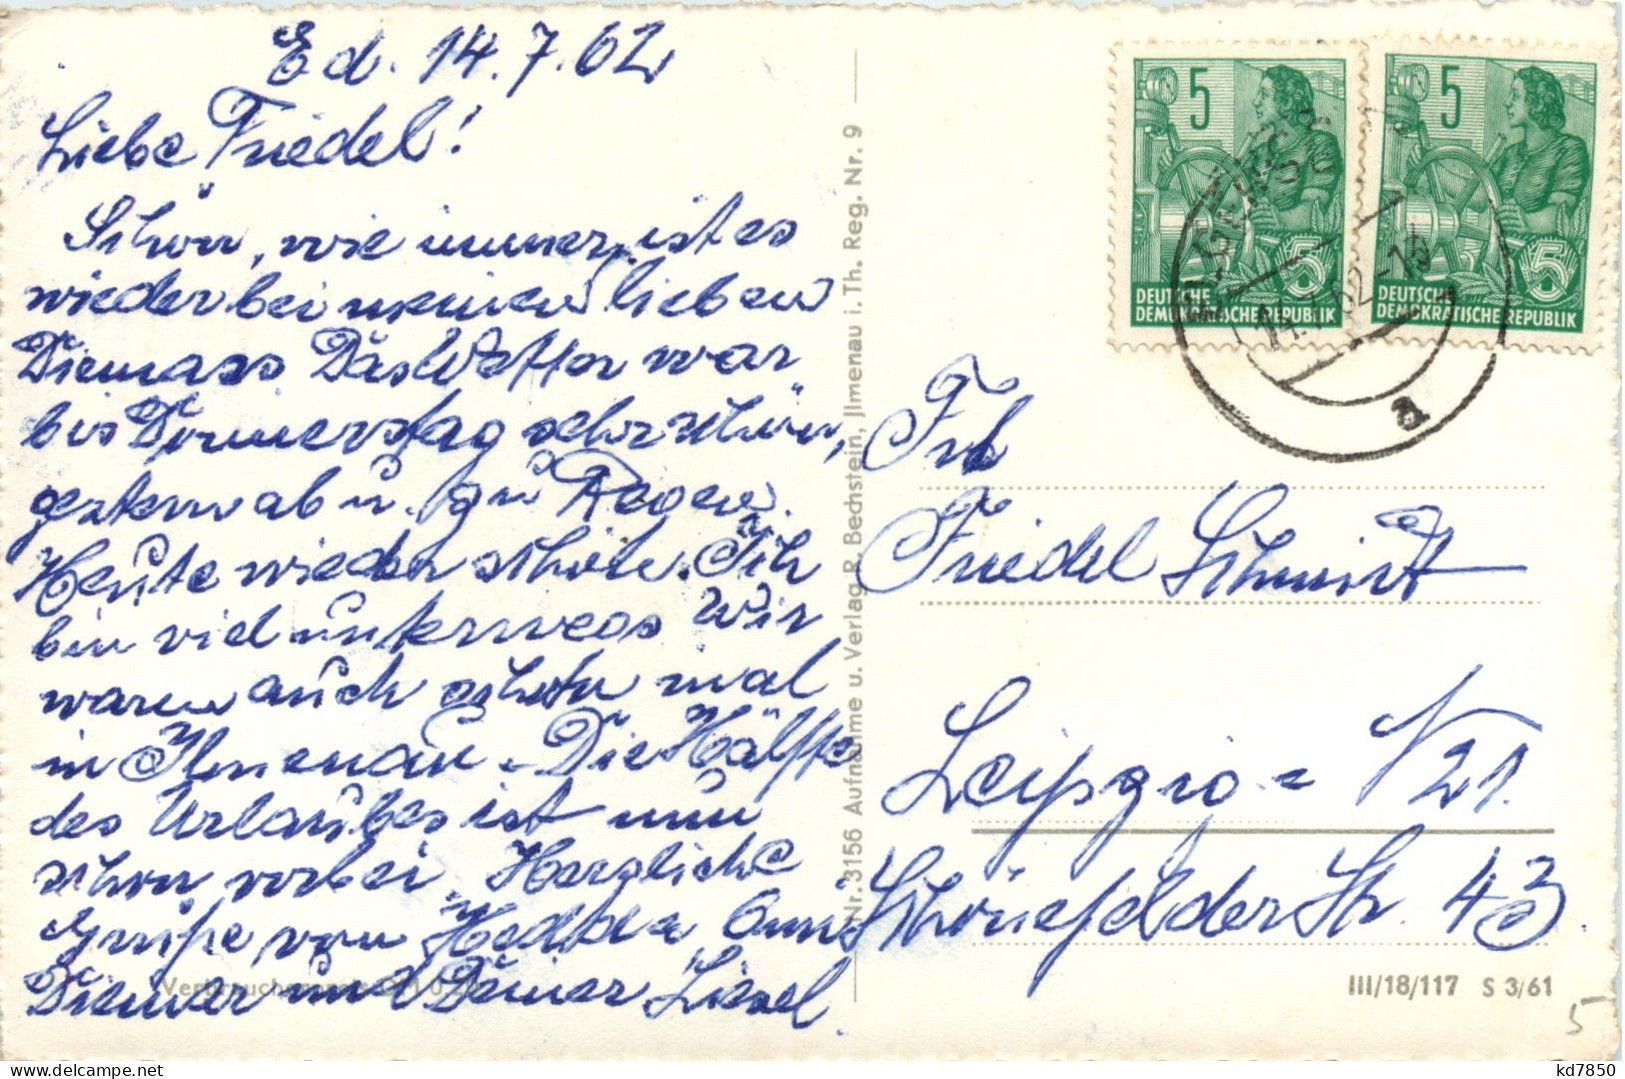 Ed. 14.7.62
Liebe Friedel!
Schön, wie immer, ist es
wieder bei meinen lieben
Das Wetter war
bis Donnerstag sehr schön,
gestern ab u. zu Regen.
Heute wieder schön. Ich
bin viel unterwegs Wir
waren auch schon mal
in Ilmenau. Die Hälfte
des Urlaubes ist nun
schon vorbei. Herzliche
Grüße von
und Deiner Liesel.
Verbraucherpreis
Nr. 3156 Aufnahme u. Verlag R. Bechstein, Jlmenau i. Th. Reg. Nr. 9
5
DEUTSCHE
DEMOKRATISCHE REPUBLIK
5
5
DEUTSCHE
DEMOKRATISCHE REPUBLIK
5
14.7.62-13
a
Frl
Friedel Schmidt
Leipzig =
Schönefelder Str. 43
III/18/117 S 3/61
5
kd7850